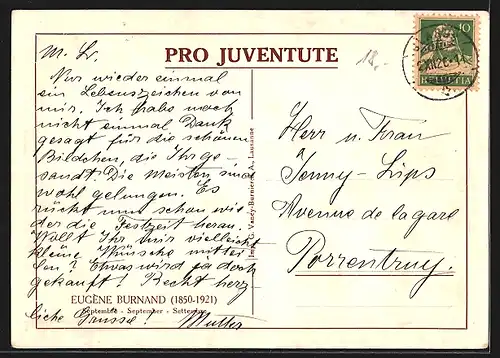 PRO JUVENTUTE
18.-
10
HELVETIA
M. Lr.
Nur wieder einmal
ein Lebenszeichen von
mir. Ich habe noch
nicht einmal Dank
gesagt für die schönen
Bildchen, die Ihr ge
sandt. Die Meisten sind
wohl gelungen. Es
rückt nun schon wie
der die Festzeit heran.
Wollt Ihr mir vielleicht
kleine Wünsche mittei
len? Etwas wird ja doch
gekauft! Recht herz
EUGÈNE BURNAND (1850-1921)
Septembre - September - Settembre
liche Grüsse! Mutter
Imp. G. Vaney-Burnier S. A., Lausanne
Herr u. Frau
Jenny-Lips
Avenue de la gare
Porrentruy.